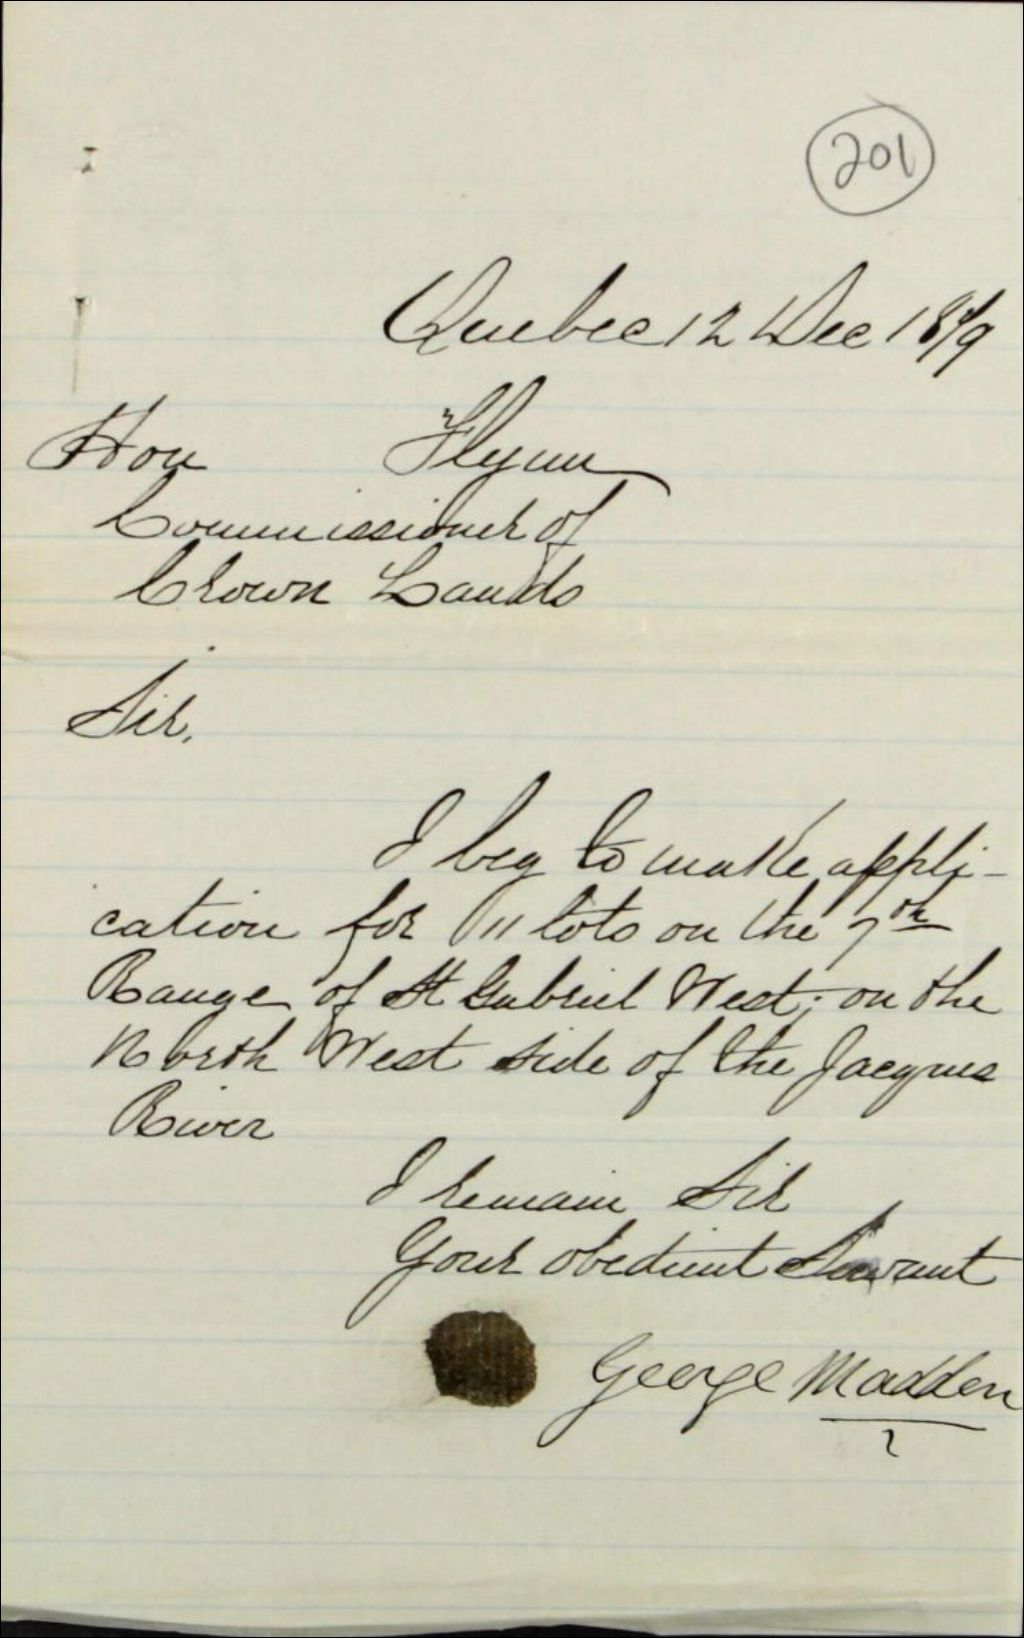 201
Quebec 12 Dec 1879
Hon Flynn
Commissioner of
Crown Lands
Sir,
I beg to make appli-
cation for 11 lots on the 7th
Range of St Gabriel West; on the
North West side of the Jacques
River
I remain Sir
Your obedient Servant
George Madden